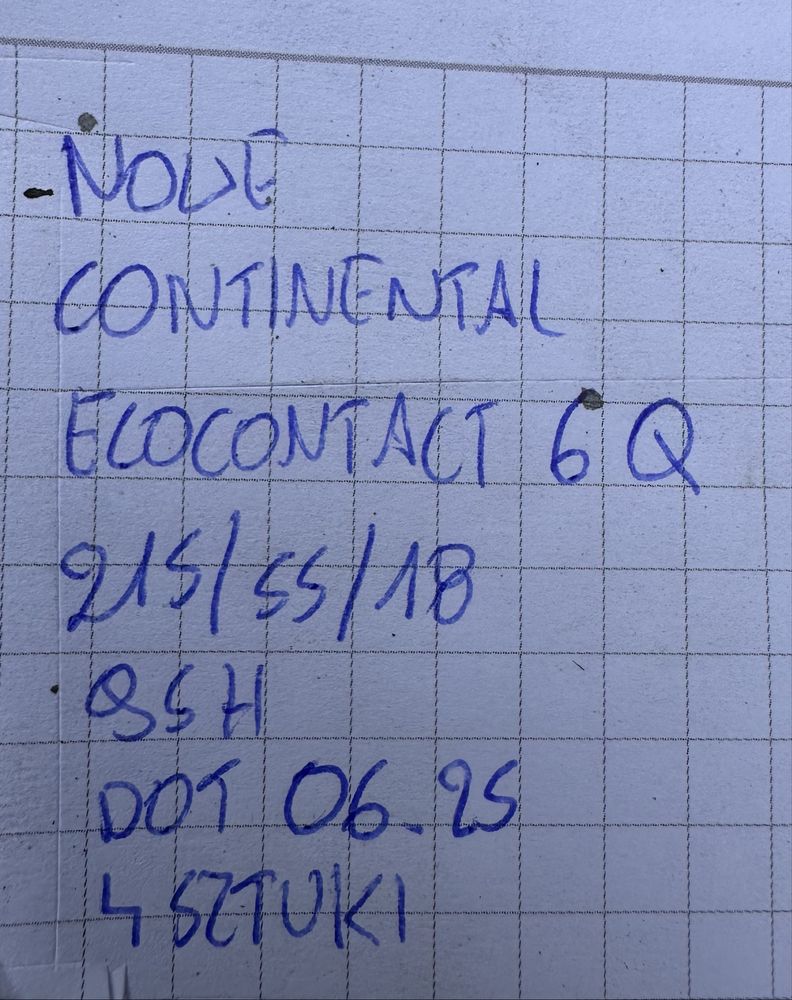 NOVE
CONTINENTAL
ECOCONTACT 6 Q
215/55/18
95H
DOT 06.25
4 SZTUKI